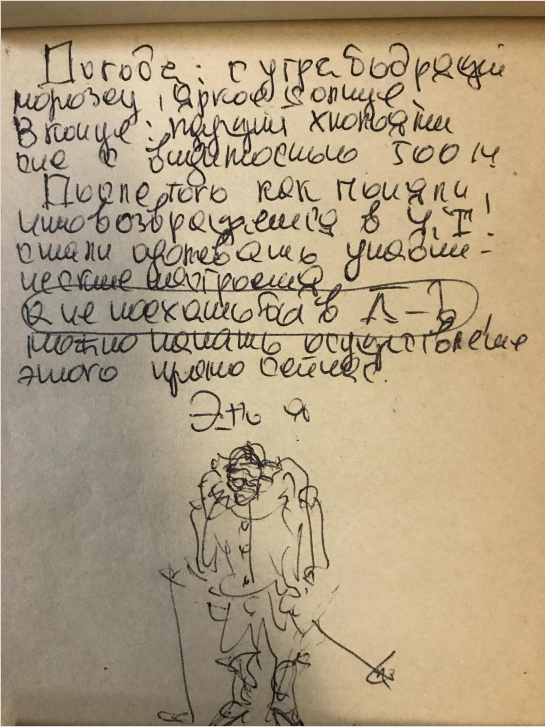 Погода: с утра бодрящий
морозец, яркое солнце
В конце: идущий хлопьями
снег с видимостью 500 м
После того как поняли
что возвращаемся в У.Т!
стали одолевать упадни-
ческие настроения
а не поехать ба в Л-д
можно начать осуществление
этого прямо сейчас.
Это я